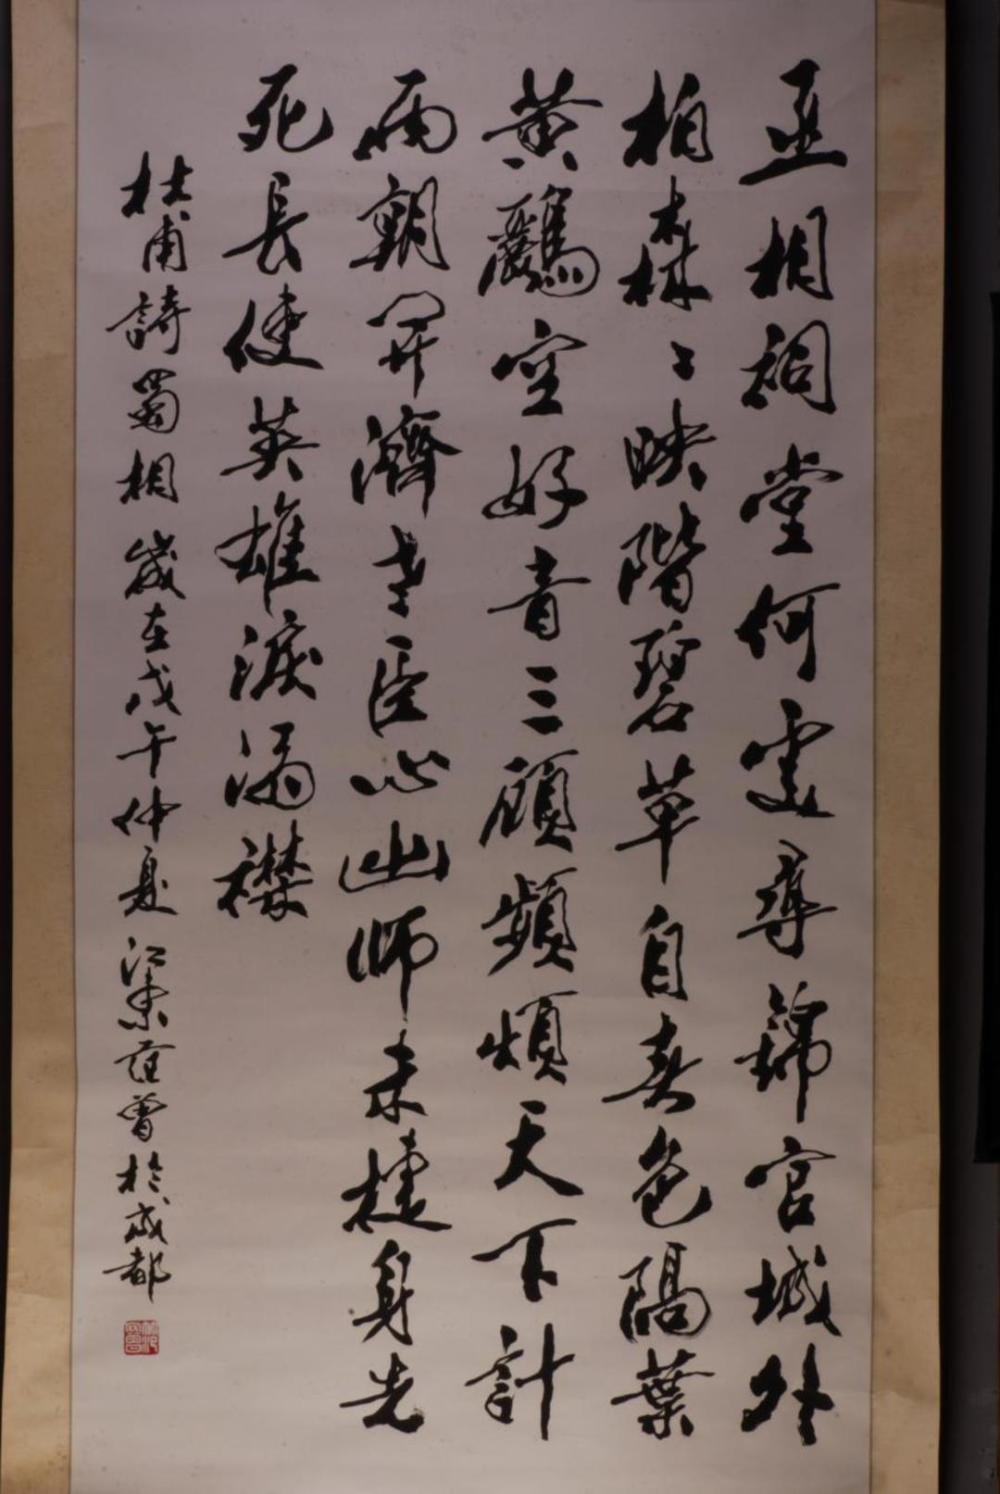 丞相祠堂何處尋錦官城外
柏森森〻映階碧草自春色隔葉
黄鸝空好音三顧頻煩天下計
兩朝開濟老臣心出師未捷身先
死長使英雄淚滿襟
杜甫詩蜀相 歲在戊午仲夏 江東范曾於成都
范曾